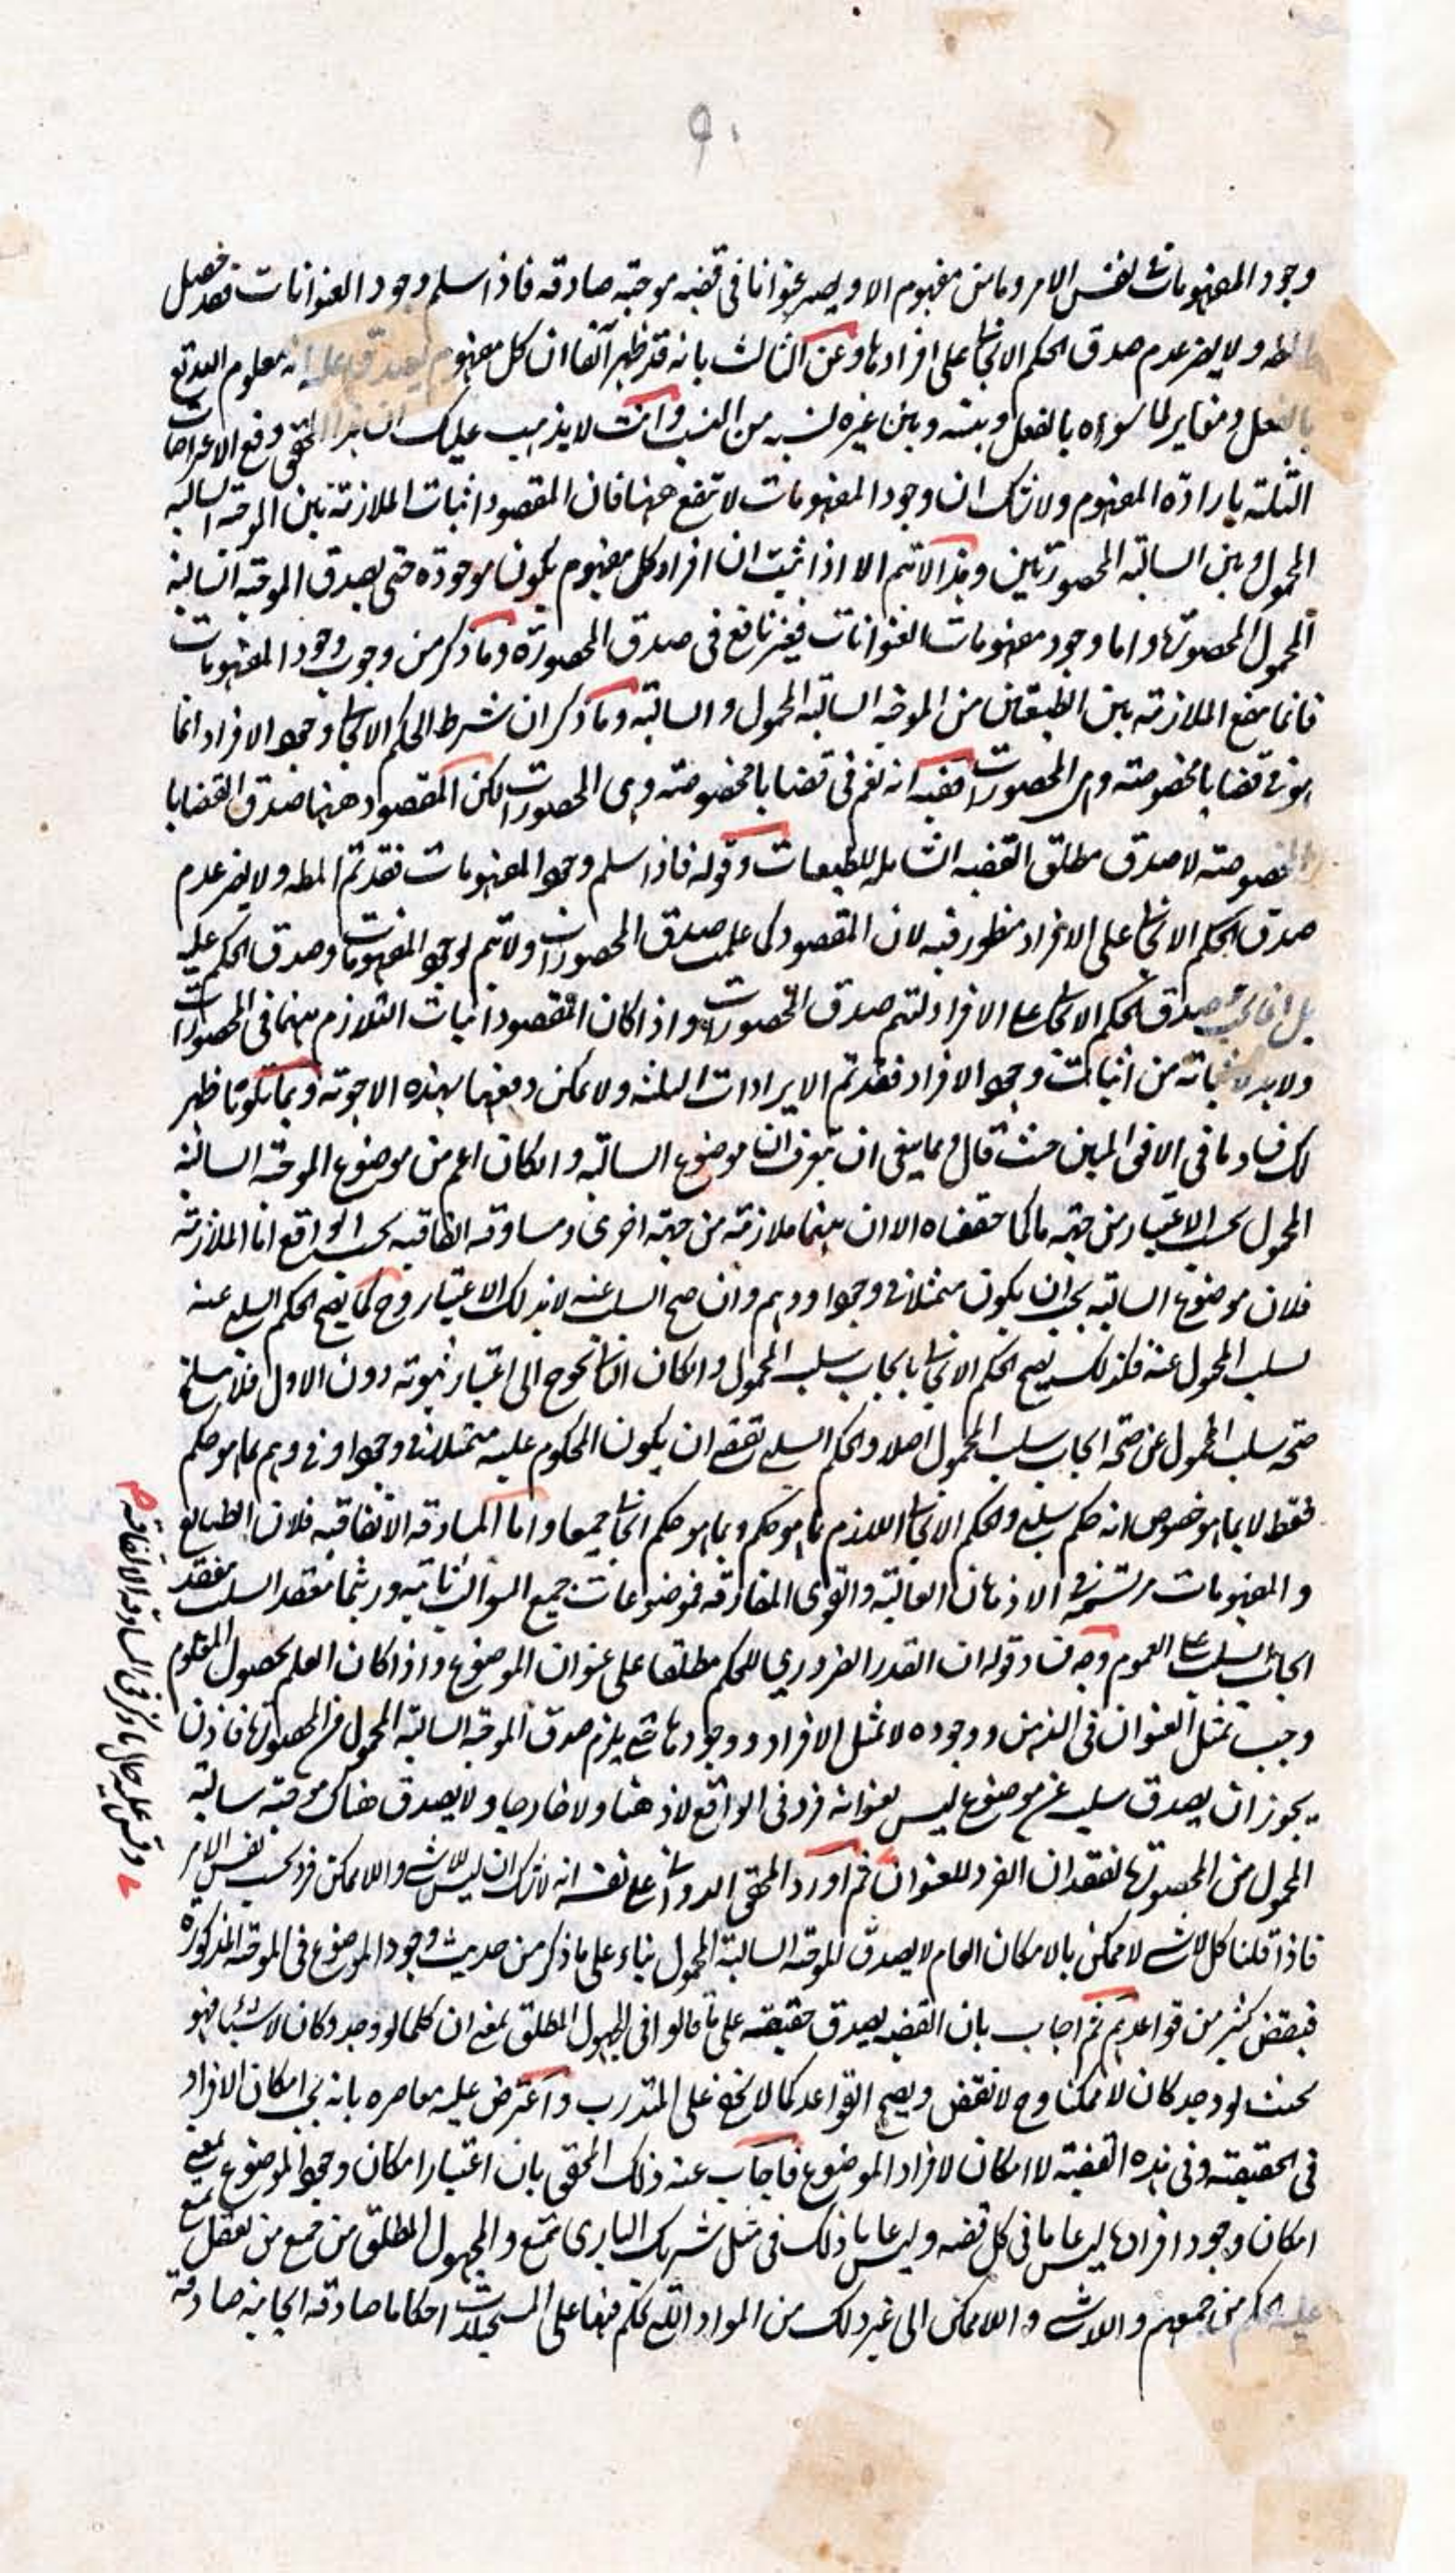 ٩٠
وجود المفهومات فى نفس الامر وما من مفهوم الا ويصير عنوانا فى قضيه موجبه صادقه فاذا سلم وجود العنوانات فقد حصل
ولا يضر عدم صدق الحكم الايجابى على افرادها وعن الثالث بانه قد ظهر آنفا ان كل مفهوم يصدق عليه انه معلوم الله تع
بالفعل ومغاير لما سواه بالفعل وبينه وبين غيره نسبه من النسب وانت لا يذهب عليك ان هذا المحقق دفع الاعتراضات
الثلثه بارادة المفهوم ولا شك ان وجود المفهومات لا تنفع ههنا فان المقصود اثبات الملازمة بين الموجبه السالبه
المحمول وبين السالبه المحصورتين وهذا لا يتم الا اذا ثبت ان افراد كل مفهوم يكون موجوده حتى يصدق الموجبه السالبه
المحمول المحصوره واما وجود مفهومات العنوانات فغير نافع فى صدق المحصورة وما ذكر من وجوب وجود المفهومات
فانما ينفع الملازمة بين الطبيعتين من الموجبه السالبه المحمول والسالبه وما ذكر ان شرط الحكم الايجابى وجود الافراد انما
هو فى قضايا مخصوصه وهى المحصورات ففيه انه نعم فى قضايا مخصوصه وهى المحصورات لكن المقصود ههنا صدق القضايا
المخصوصه لا صدق مطلق القضيه الشامله للطبيعات وقوله فاذا سلم وجود المفهومات فقد تم المط ولا يضر عدم
صدق الحكم الايجابى على الافراد منظور فيه لان المقصود كما علمت صدق المحصورات ولا يتم بوجود المفهومات وصدق الحكم عليه
بل انما يجب صدق الحكم الايجابى على الافراد ليتم صدق المحصورات واذا كان المقصود اثبات التلازم بينهما فى المحصورات
ولا بد لاثباته من اثبات وجود الافراد فقد تم الايرادات الثلثه ولا يمكن دفعها بهذه الاجوبة وبما تلونا ظهر
لك فساد ما فى الافق المبين حيث قال ومما ينبغى ان تعرف ان موضوع السالبه وان كان اعم من موضوع الموجبه السالبه
المحمول بحسب الاعتبار من جهة ما كما حققناه الا ان بينهما ملازمة من جهة اخرى ومساوقه اتفاقيه بحسب الواقع اما الملازمة
فلان موضوع السالبه يجب ان يكون متمثلا فى وجود او وهم وان صح السلب عنه لا بذلك الاعتبار وح كما يصح الحكم السلبى عنه
بسلب المحمول عنه فكذلك يصح الحكم الايجابى بايجاب سلب المحمول وان كان الثانى يحوج الى اعتبار ثبوته دون الاول فلا ينسلخ
صحه سلب المحمول عن صحه ايجاب سلب المحمول اصلا والحكم السلبى يقتضى ان يكون المحكوم عليه متمثلا فى وجود او فى وهم بما هو حكم
فقط لا بما هو خصوص انه حكم سلبى والحكم الايجابى اللازم بما هو حكم وبما هو حكم ايجابى جميعا واما المساوقه الاتفاقيه فلان الطبائع
والمفهومات مرتسمه فى الاذهان العاليه والقوى المفارقه فموضوعات جميع السوالب ثابته وريثما ينعقد السلب ينعقد
ايجاب السلب على العموم وجه فساد قوله ان القدر الضرورى للحكم مطلقا على عنوان الموضوع واذا كان العلم بحصول المعلوم
وجب تمثل العنوان فى الذهن ووجوده لا تمثل الافراد ووجودها حتى يلزم صدق الموجبه السالبه المحمول من المحصوره فاذن
يجوز ان يصدق سلب عن موضوع ليس لعنوانه فرد فى الواقع لا ذهنا ولا خارجا ولا يصدق هناك موجبه سالبه
المحمول من المحصوره لفقدان الفرد للعنوان ثم اورد المحقق الدوانى على نفسه انه لا شك ان ليس للاشى واللاممكن فرد بحسب نفس الامر
فاذا قلنا كل لا شى لا ممكن بالامكان العام لا يصدق الموجبه السالبه المحمول بناء على ما ذكر من حديث وجود الموضوع فى الموجبه المذكورة
فينتقض كثير من قواعدهم ثم اجاب بان القضيه يصدق حقيقيه على ما قالوا فى المجهول المطلق بمعنى ان كلما لو وجد وكان لا شيئا فهو
بحيث لو وجد كان لا ممكنا وح لا نقض ويصح القواعد كما لا يخفى على المتدرب واعترض عليه معاصره بانه يجب امكان الافراد
فى الحقيقيه وفى هذه القضيه لا امكان لافراد الموضوع فاجاب عنه ذلك المحقق بان اعتبار امكان وجود الموضوع بمعنى
امكان وجود افراده ليس عاما فى كل قضيه وليس عاما ذلك فى مثل شريك البارى ممتنع والمجهول المطلق من جميع من يعقل يمتنع
عليه الحكم من جميعهم واللاشى واللاممكن الى غير ذلك من المواد التى يحكم فيها على المستحيلات احكاما صادقه ايجابيه صادقه
وقس عليه حال ما ذكر فى المساوقه الاتفاقيه